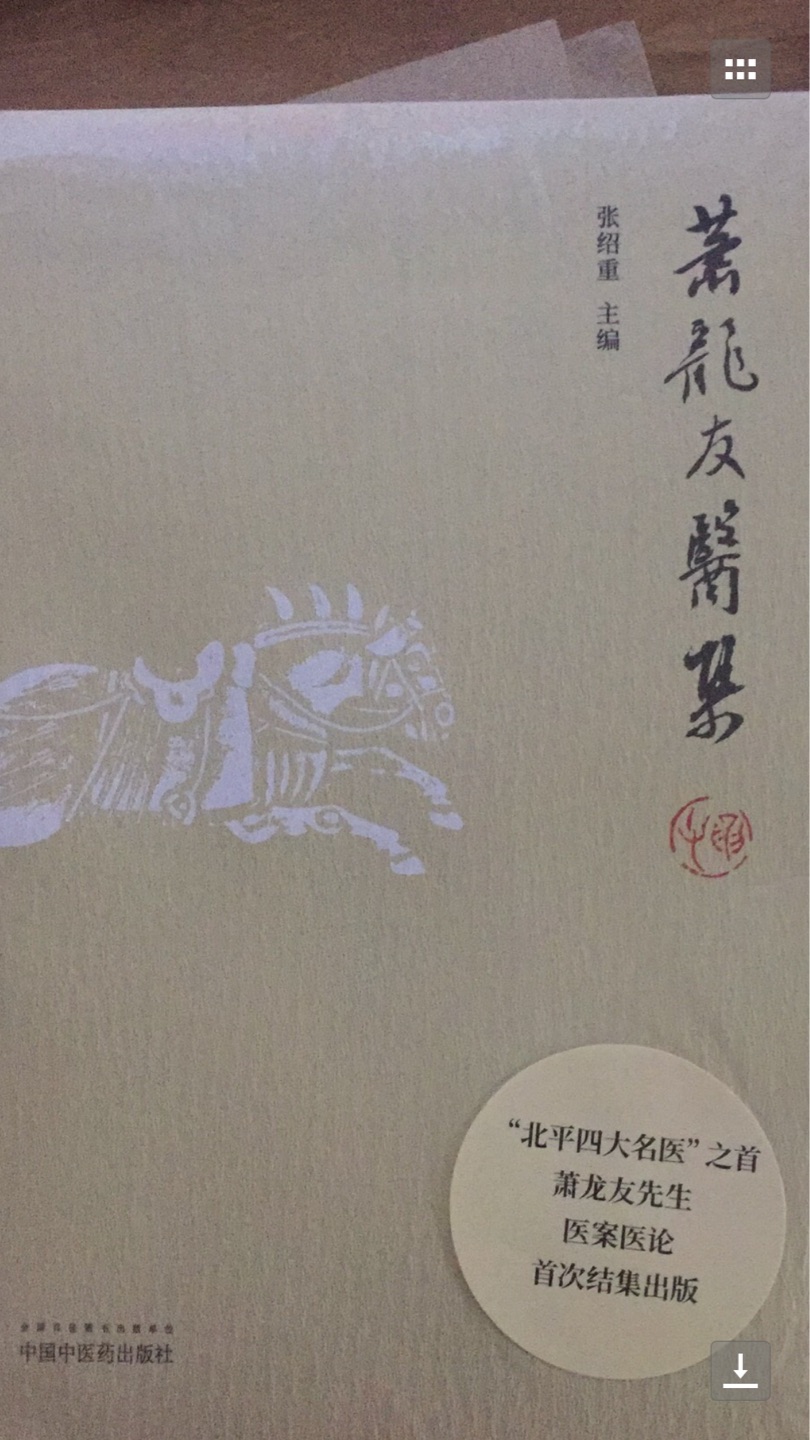 萧龍友醫集
张绍重 主编
“北平四大名医”之首
萧龙友先生
医案医论
首次结集出版
全国百佳图书出版单位
中国中医药出版社